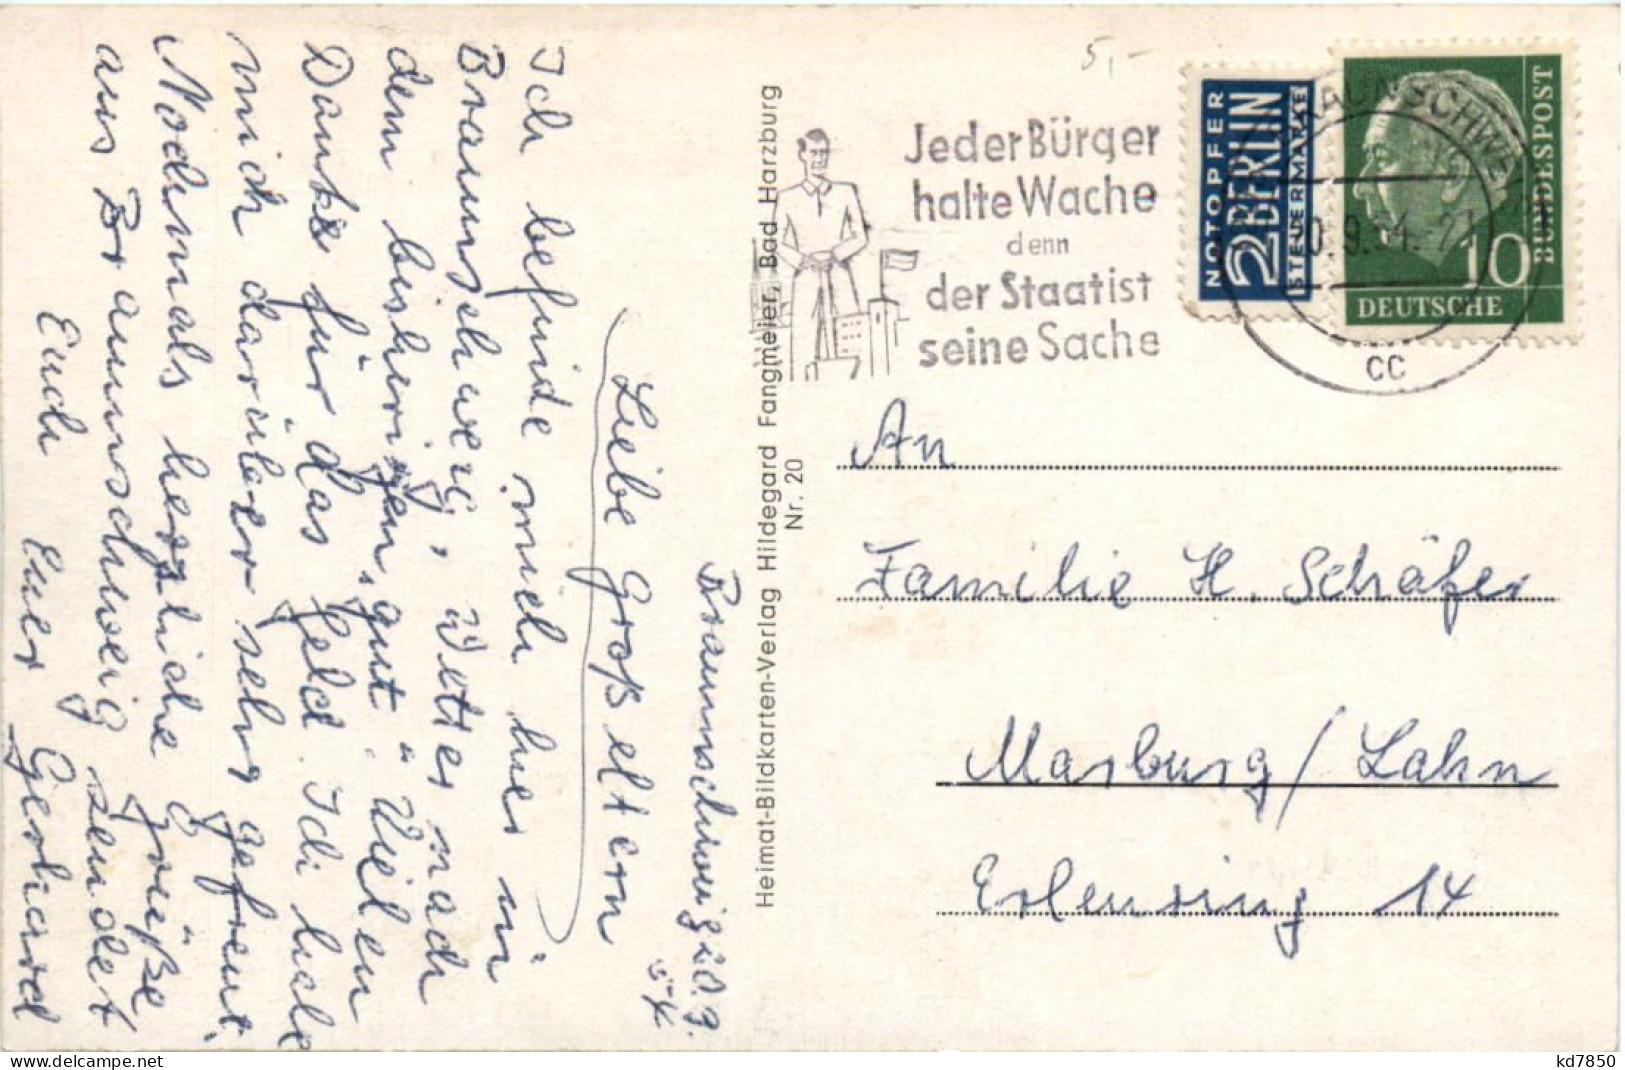 Braunschweig 20.9.
54
Liebe Großeltern
Ich befinde mich hier in
Braunschweig, Wetter nach
dem bisherigen, gut. Vielen
Dank für das Geld. Ich habe
mich darüber sehr gefreut.
Nochmals herzliche Grüße
aus Braunschweig sendet
Euch Euer Gerhard
Heimat-Bildkarten-Verlag Hildegard Fangmeier, Bad Harzburg
Nr. 20
5,-
Jeder Bürger
halte Wache
denn
der Staat ist
seine Sache
NOTOPFER
2 BERLIN
STEUERMARKE
BRAUNSCHWEIG
20.9.54.-21
cc
10
DEUTSCHE
BUNDESPOST
An
Familie H. Schäfer
Marburg/Lahn
Erlenring 14
kd7850